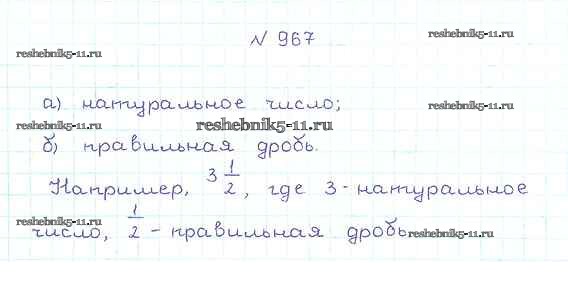 № 967
reshebnik5-11.ru
reshebnik5-11.ru
а) натуральное число;
reshebnik5-11.ru
reshebnik5-11.ru
reshebnik5-11.ru
б) правильная дробь.
Например, 3 1/2, где 3 - натуральное
reshebnik5-11.ru
число, 1/2 - правильная дробь
reshebnik5-11.ru